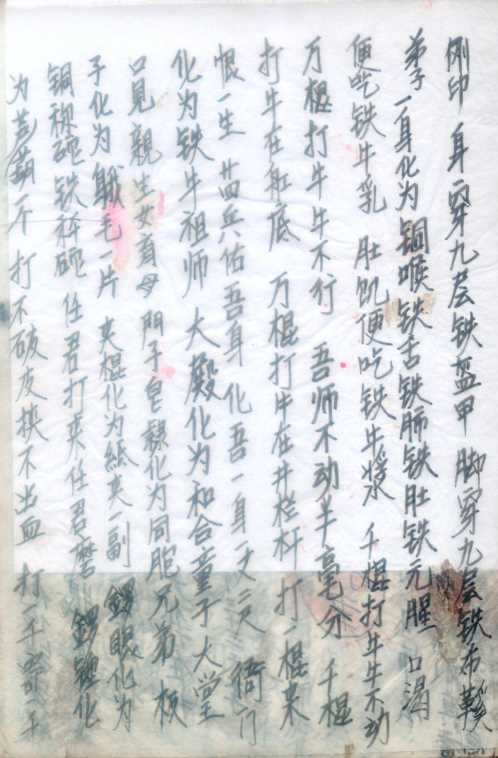 侧印 身穿九层铁盔甲 脚穿九层铁布鞋
弟子一身化为铜喉铁舌铁肺铁肚铁元腥 口渴
便吃铁牛乳 肚饥便吃铁牛浆 千棍打牛牛不动
万棍打牛牛不行 吾师不动羊毫分 千棍
打牛在缸底 万棍打牛在井栏杆 打一棍来
恨一生 苗兵佑吾身 化吾一身
化为铁牛祖师 大殿化为和合童子 大堂
口见親生父育母 門子皂隸化为同胞兄弟 板
子化为鹅毛一片 夹棍化为紙夹一副 鑼眼化为
铜 碗铁 碗 任君打来任君磨 鑼 化
为 葫 打不破皮挟不出血 打一千